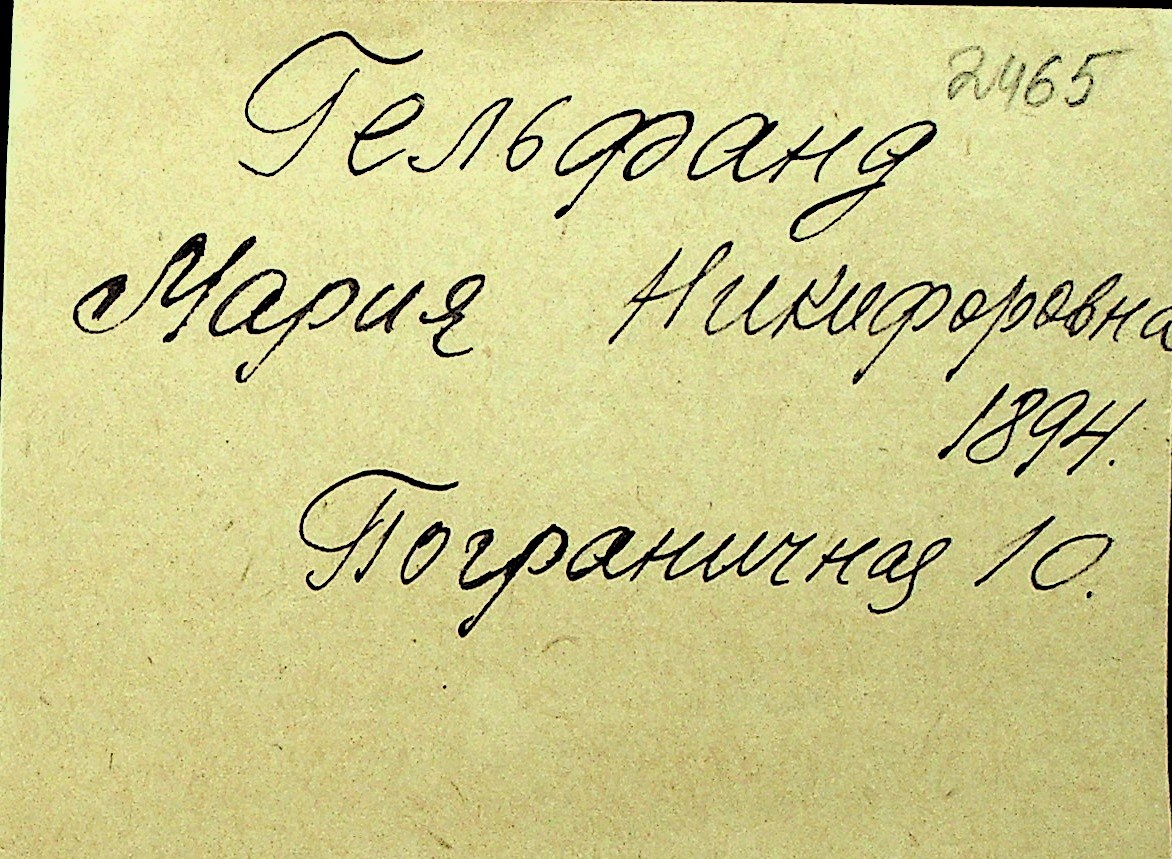 2465
Гельфанд
Мария Никифоровна
1894.
Пограничная 10.